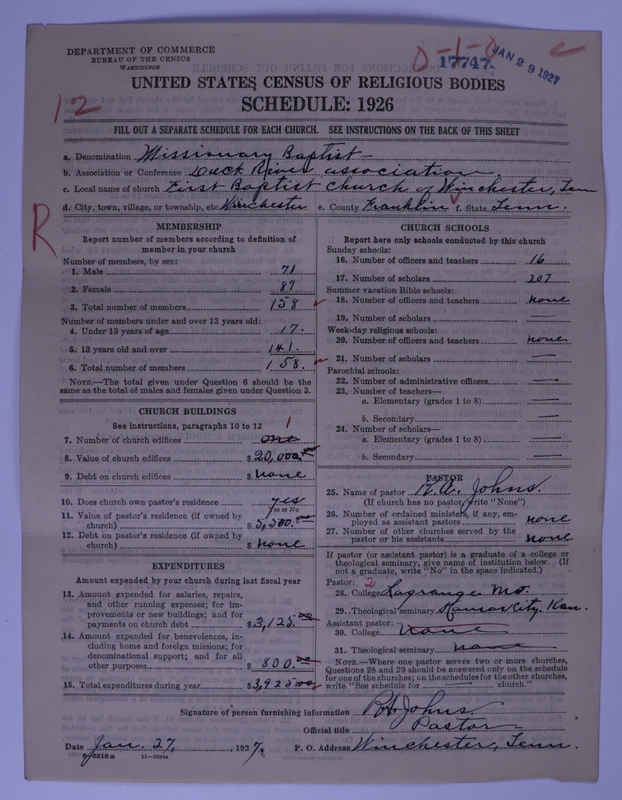 DEPARTMENT OF COMMERCE
BUREAU OF THE CENSUS
WASHINGTON
0-1-0
17747
JAN 29 1927
UNITED STATES CENSUS OF RELIGIOUS BODIES
SCHEDULE: 1926
12
FILL OUT A SEPARATE SCHEDULE FOR EACH CHURCH. SEE INSTRUCTIONS ON THE BACK OF THIS SHEET
a. Denomination Missionary Baptist
b. Association or Conference Duck River association.
c. Local name of church First Baptist church of Winchester, Tenn
d. City, town, village, or township, etc Winchester e. County Franklin f. State Tenn.
R
MEMBERSHIP
Report number of members according to definition of
member in your church
Number of members, by sex:
1. Male 71
2. Female 87
3. Total number of members 158
Number of members under and over 13 years old:
4. Under 13 years of age 17.
5. 13 years old and over 141.
6. Total number of members 158.
NOTE.—The total given under Question 6 should be the
same as the total of males and females given under Question 3.
CHURCH BUILDINGS
See instructions, paragraphs 10 to 12
7. Number of church edifices one 1
8. Value of church edifices $20,000.00
9. Debt on church edifices $ none
10. Does church own pastor's residence yes
Yes or No
11. Value of pastor's residence (if owned by
church) $5,500.00
12. Debt on pastor's residence (if owned by
church) $ none
EXPENDITURES
Amount expended by your church during last fiscal year
13. Amount expended for salaries, repairs,
and other running expenses; for im-
provements or new buildings; and for
payments on church debt $3,125.00
14. Amount expended for benevolences, in-
cluding home and foreign missions; for
denominational support; and for all
other purposes $ 800.00
15. Total expenditures during year $3,925.00
CHURCH SCHOOLS
Report here only schools conducted by this church
Sunday schools:
16. Number of officers and teachers 16
17. Number of scholars 207
Summer vacation Bible schools:
18. Number of officers and teachers none
19. Number of scholars —
Week-day religious schools:
20. Number of officers and teachers none
21. Number of scholars —
Parochial schools:
22. Number of administrative officers —
23. Number of teachers—
a. Elementary (grades 1 to 8) —
b. Secondary —
24. Number of scholars—
a. Elementary (grades 1 to 8) —
b. Secondary —
PASTOR
25. Name of pastor R. A. Johns.
(If church has no pastor, write "None")
26. Number of ordained ministers, if any, em-
ployed as assistant pastors none
27. Number of other churches served by the
pastor or his assistants none
If pastor (or assistant pastor) is a graduate of a college or
theological seminary, give name of institution below. (If
not a graduate, write "No" in the space indicated.)
Pastor: 2
28. College Lagrange Mo.
29. Theological seminary Kansas City, Kan.
Assistant pastor:
30. College none
31. Theological seminary none
NOTE.—Where one pastor serves two or more churches,
Questions 28 and 29 should be answered only on the schedule
for one of the churches; on the schedules for the other churches,
write "See schedule for — church."
Signature of person furnishing information R A Johns
Official title Pastor
Date Jan. 27, 1927. P. O. Address Winchester, Tenn.